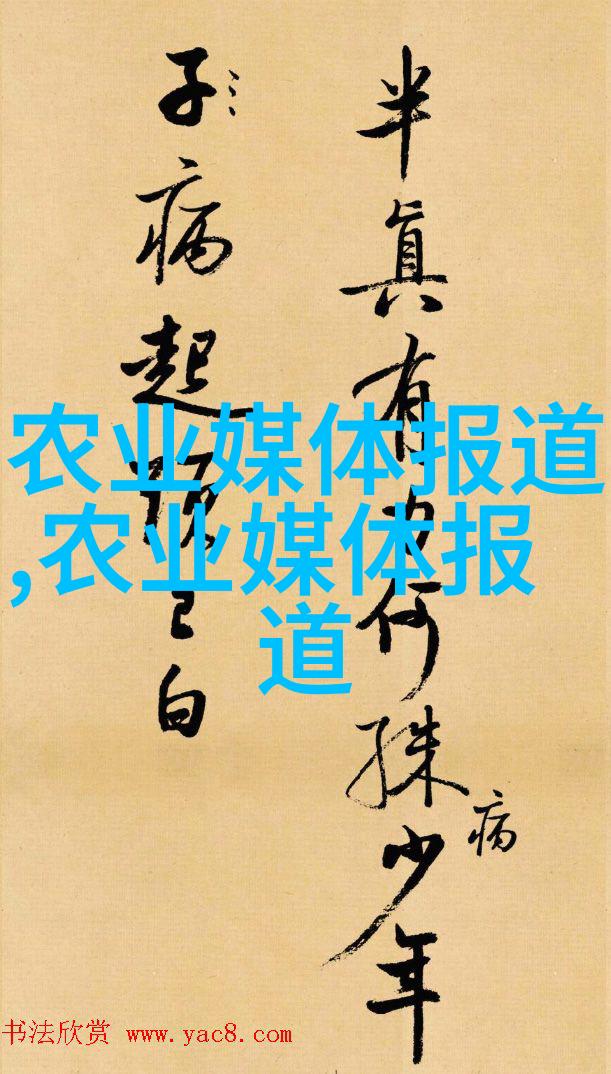 半真有力何殊少年
病
子病起頭已白
农业媒体报道
,农业媒体报
道
书法欣赏 www.yac8.com